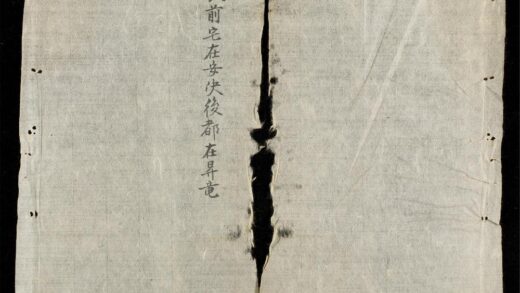 前宅在安决後都在昇竜